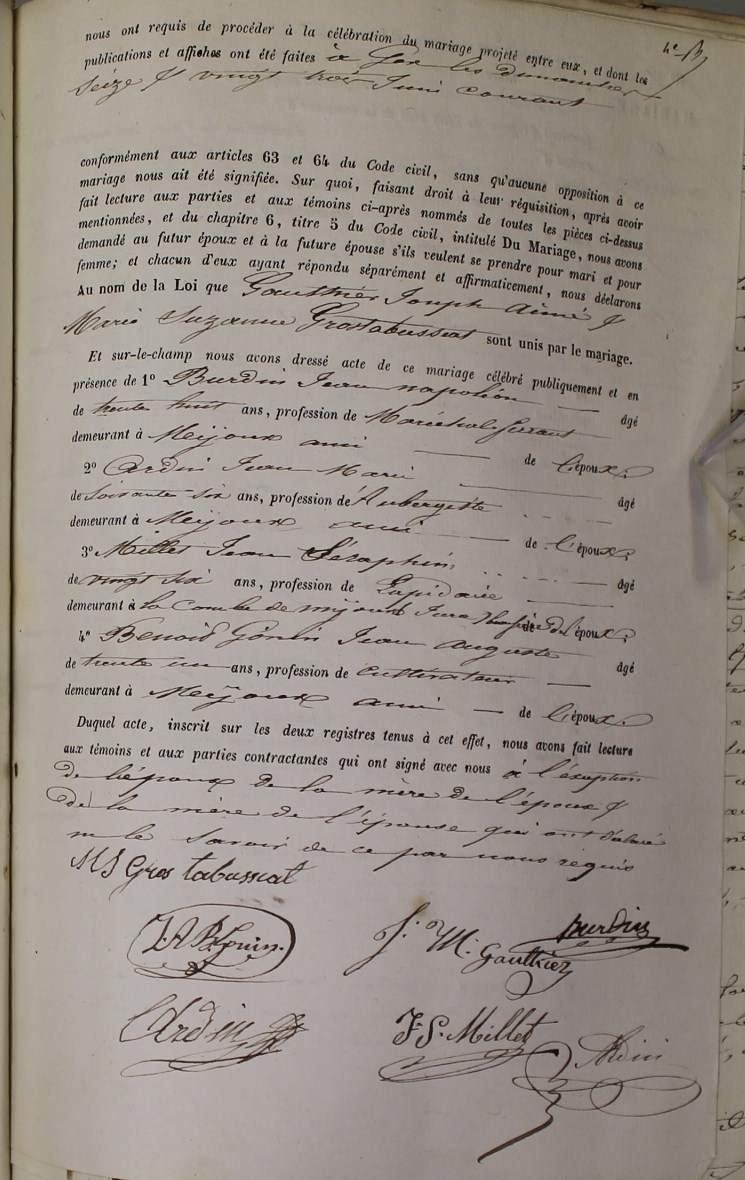 nous ont requis de procéder à la célébration du mariage projeté entre eux, et dont les
publications et affiches ont été faites à Gex les dimanches
Seize & vingt trois Juin courant
conformément aux articles 63 et 64 du Code civil, sans qu'aucune opposition à ce
mariage nous ait été signifiée. Sur quoi, faisant droit à leur réquisition, après avoir
fait lecture aux parties et aux témoins ci-après nommés de toutes les pièces ci-dessus
mentionnées, et du chapitre 6, titre 5 du Code civil, intitulé Du Mariage, nous avons
demandé au futur époux et à la future épouse s'ils veulent se prendre pour mari et pour
femme; et chacun d'eux ayant répondu séparément et affirmativement, nous déclarons
Au nom de la Loi que Gauthier Joseph Aimé &
Marie Suzanne Grostabussiat sont unis par le mariage.
Et sur-le-champ nous avons dressé acte de ce mariage célébré publiquement et en
présence de 1º Burdin Jean napoléon âgé
de trente huit ans, profession de Maréchal-ferrant
demeurant à Meijoux ami de l'époux.
2º Ardin Jean Marie âgé
de soixante six ans, profession de Aubergiste
demeurant à Meijoux ami de l'époux.
3º Millet Jean Séraphin, âgé
de vingt six ans, profession de Lapidaire
demeurant à la Combe de mijoux Jura de l'époux.
4º Benoid Gonin Jean Auguste âgé
de trente un ans, profession de Cultivateur
demeurant à Meijoux ami de l'époux.
Duquel acte, inscrit sur les deux registres tenus à cet effet, nous avons fait lecture
aux témoins et aux parties contractantes qui ont signé avec nous à l'éxception
de l'époux de la mère de l'époux &
de la mère de l'épouse qui ont déclaré
ne le savoir de ce par nous requis
MS Gros tabussiat
J. M. Gauthier
burdin
Ardin
J. S. Millet